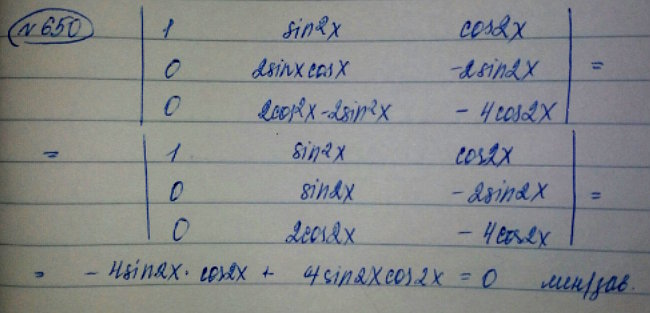 №650 | 1 sin²x cos2x |
| 0 2sinxcosx -2sin2x | =
| 0 2cos²x-2sin²x - 4cos2x |
= | 1 sin²x cos2x |
| 0 sin2x -2sin2x | =
| 0 2cos2x - 4cos2x |
= - 4sin2x · cos2x + 4sin2xcos2x = 0 лин/зав.